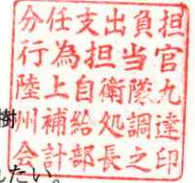 分任支出負担
行為担当官
陸上自衛隊九
州補給処調達
会計部長之印
樹
たい。